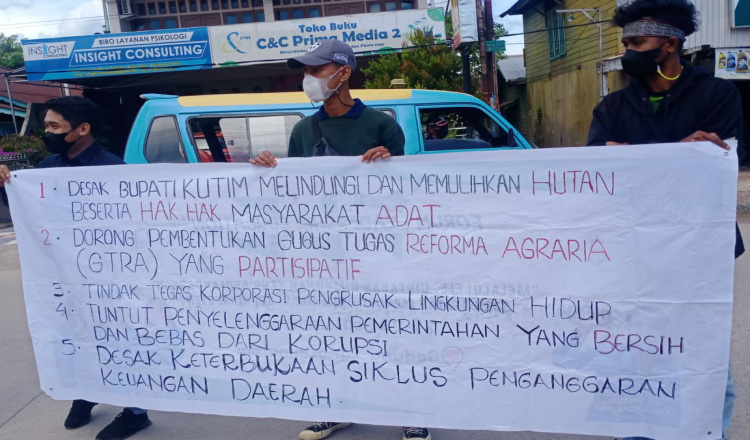 BIRO LAYANAN PSIKOLOGI
INSIGHT CONSULTING
INSIGHT
CONSULTING
Toko Buku
C&C Prima Media 2
1. DESAK BUPATI KUTIM MELINDUNGI DAN MEMULIHKAN HUTAN
BESERTA HAK HAK MASYARAKAT ADAT
2. DORONG PEMBENTUKAN GUGUS TUGAS REFORMA AGRARIA
(GTRA) YANG PARTISIPATIF
3. TINDAK TEGAS KORPORASI PENGRUSAK LINGKUNGAN HIDUP
4. TUNTUT PENYELENGGARAAN PEMERINTAHAN YANG BERSIH
DAN BEBAS DARI KORUPSI
5. DESAK KETERBUKAAN SIKLUS PENGANGGARAN
KEUANGAN DAERAH.